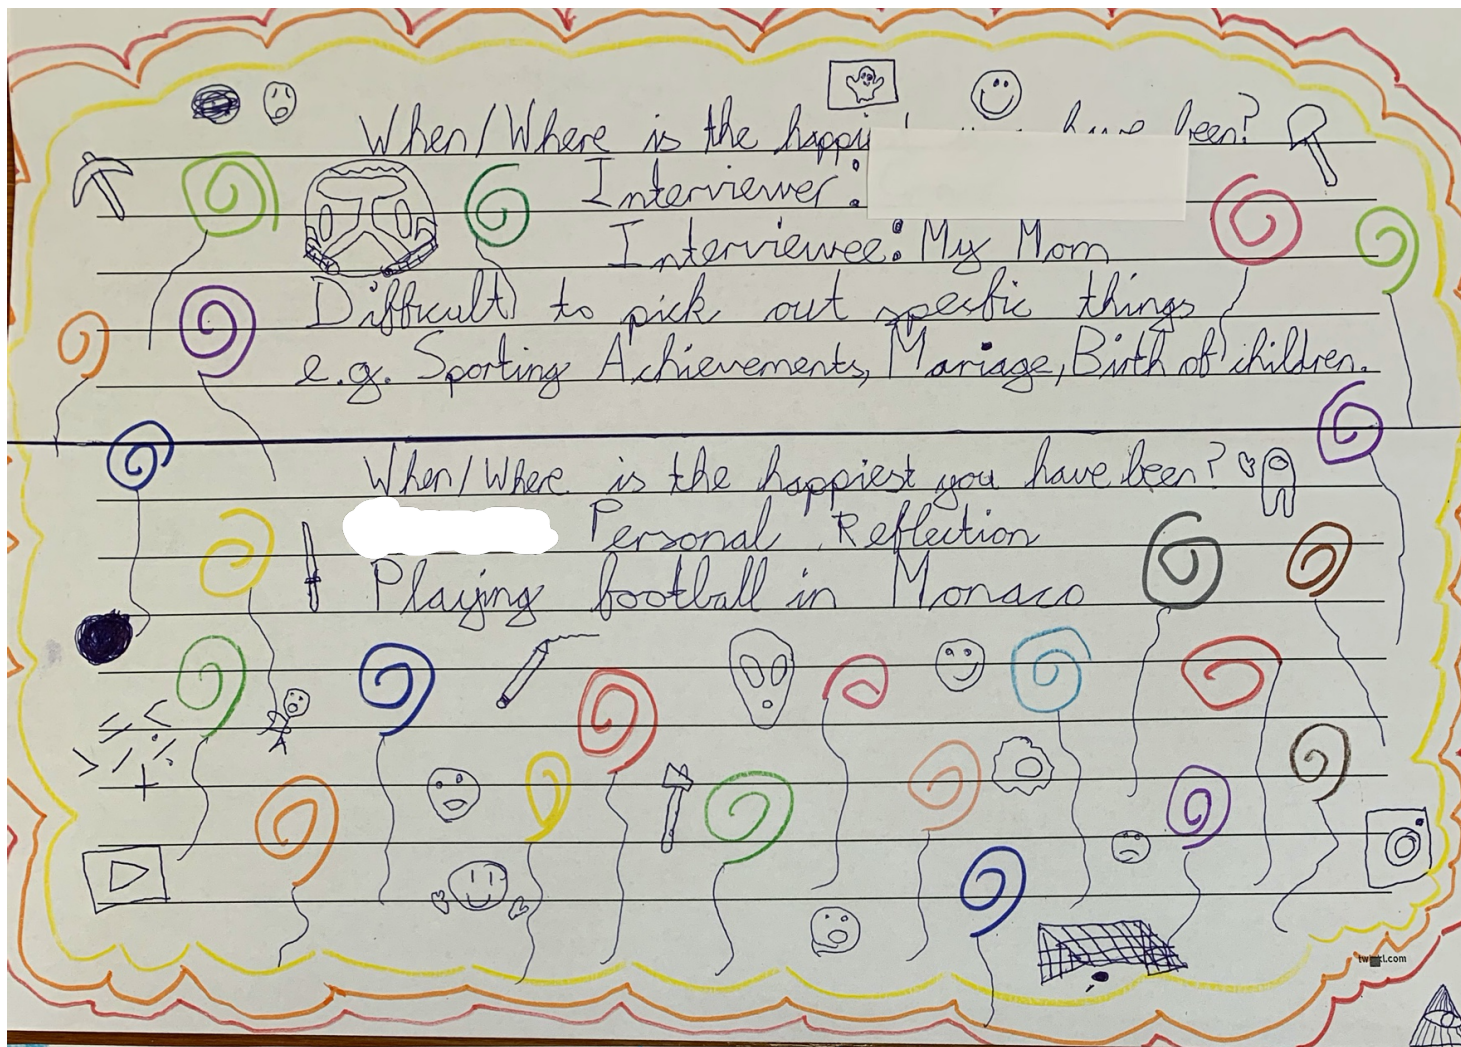 When/Where is the have been?
Interviewer:
Interviewee: My Mom
Difficult to pick out spesfic things
e.g. Sporting Achievements, Mariage, Birth of children.
When/Where is the happiest you have been?
Personal Reflection
Playing football in Monaco